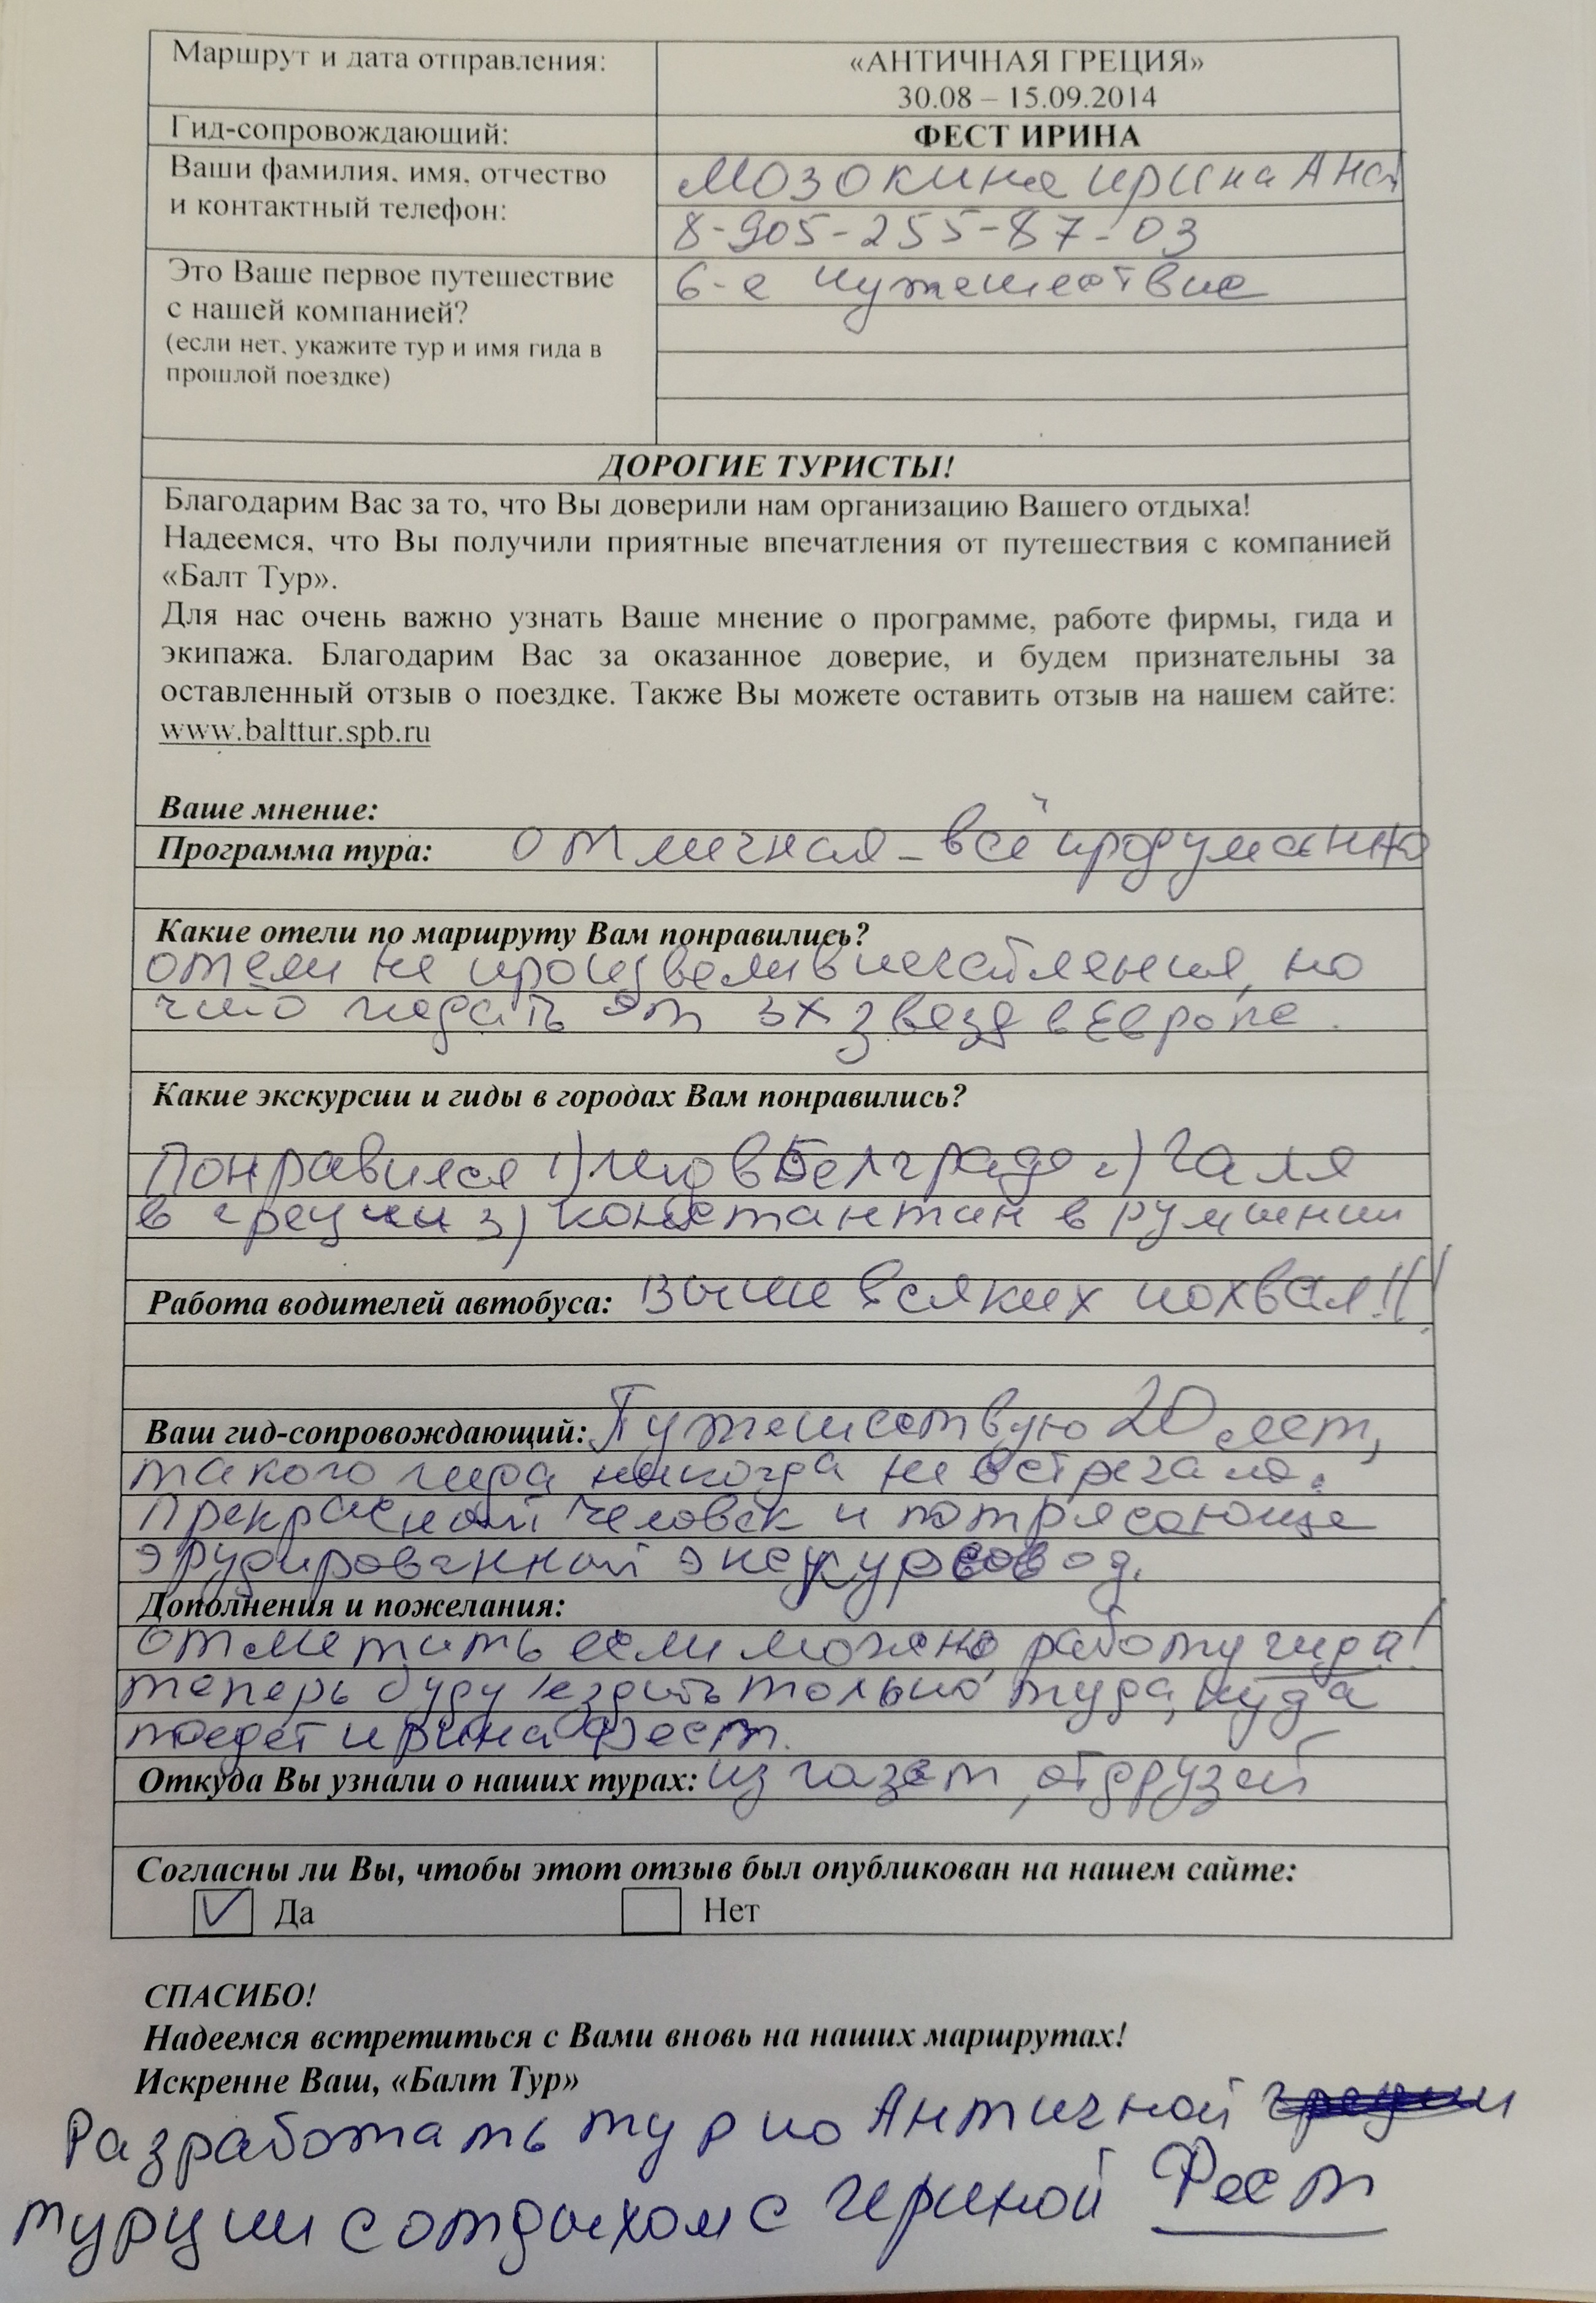 Маршрут и дата отправления:
«АНТИЧНАЯ ГРЕЦИЯ»
30.08 – 15.09.2014
Гид-сопровождающий:
ФЕСТ ИРИНА
Ваши фамилия, имя, отчество
и контактный телефон:
Мозокина Ирина Анат
8-905-255-87-03
Это Ваше первое путешествие
с нашей компанией?
(если нет, укажите тур и имя гида в
прошлой поездке)
6-е путешествие
ДОРОГИЕ ТУРИСТЫ!
Благодарим Вас за то, что Вы доверили нам организацию Вашего отдыха!
Надеемся, что Вы получили приятные впечатления от путешествия с компанией
«Балт Тур».
Для нас очень важно узнать Ваше мнение о программе, работе фирмы, гида и
экипажа. Благодарим Вас за оказанное доверие, и будем признательны за
оставленный отзыв о поездке. Также Вы можете оставить отзыв на нашем сайте:
www.balttur.spb.ru
Ваше мнение:
Программа тура: отличная – всё продуманно
Какие отели по маршруту Вам понравились?
отели не произвели впечатления, но
чего ждать от 3х звезд в Европе.
Какие экскурсии и гиды в городах Вам понравились?
Понравился 1) гид в Белграде 2) Галя
в греции 3) константин в румынии
Работа водителей автобуса: Выше всяких похвал!!!
Ваш гид-сопровождающий: Путешествую 20 лет,
такого гида никогда не встречала.
Прекрасный человек и потрясающе
эрудированный экскурсовод.
Дополнения и пожелания:
отметить если можно работу гида!
теперь буду ездить только туда, куда
поедет ирина Фест.
Откуда Вы узнали о наших турах: из газет, от друзей
Согласны ли Вы, чтобы этот отзыв был опубликован на нашем сайте:
Да Нет
СПАСИБО!
Надеемся встретиться с Вами вновь на наших маршрутах!
Искренне Ваш, «Балт Тур»
Разработать тур по Античной греции
турции с отдыхом с Ириной Фест